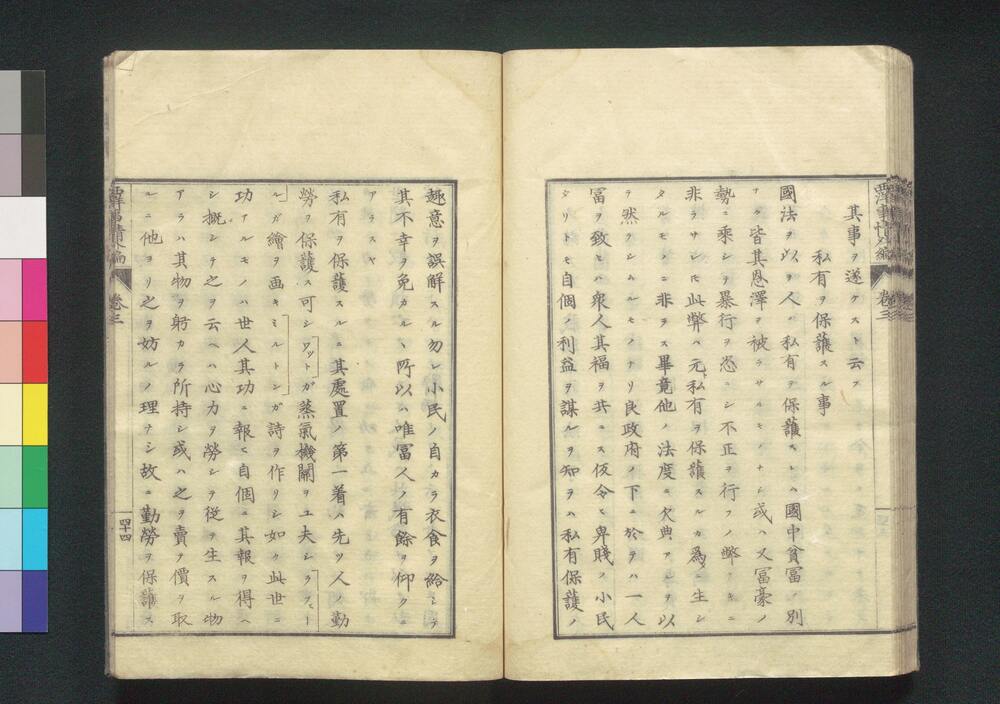 其事ヲ遂ケスト云フ
私有ヲ保護スル事
國法ヲ以テ人ノ私有ヲ保護スレハ國中貧冨ノ別
ナク皆其恩澤ヲ被ラサルモノナシ或ハ又冨豪ノ
勢ニ乘シテ暴行ヲ恣ニシ不正ヲ行フノ弊ナキニ
非ラサレㇳモ此弊ハ元ト私有ヲ保護スルカ爲ニ生シ
タルモノニ非ラス畢竟他ノ法度ニ欠典アルヲ以テ
然ラシムルモノナリ良政府ノ下ニ於テハ一人
冨ヲ致セハ衆人其福ヲ共ニス仮令ヒ卑賤ノ小民
タリトモ自個ノ利益ヲ謀ルヲ知ラハ私有保護ノ
西洋事情外編
卷三
趣意ヲ誤解スル勿レ小民ノ自カラ衣食ヲ給シテ
其不幸ヲ免カルヽ所以ハ唯冨人ノ有餘ヲ仰クニ
アラスヤ
私有ヲ保護スルニ其處置ノ第一着ハ先ツ人ノ勤
勞ヲ保護ス可シワットガ蒸氣機關ヲ工夫シラフヒー
ルガ繪ヲ画キミルトンガ詩ヲ作リシ如ク此世ニ
功アルモノハ世人其功ニ報ヒ自個ニ其報ヲ得ヘ
シ概シテ之ヲ云ヘハ心力ヲ勞シテ從テ生スル物
アラハ其物ヲ躬カラ所持シ或ハ之ヲ賣テ價ヲ取
ルニ他ヨリ之ヲ妨ルノ理ナシ故ニ勤勞ヲ保護ス
西洋事情外編
卷三
四十四